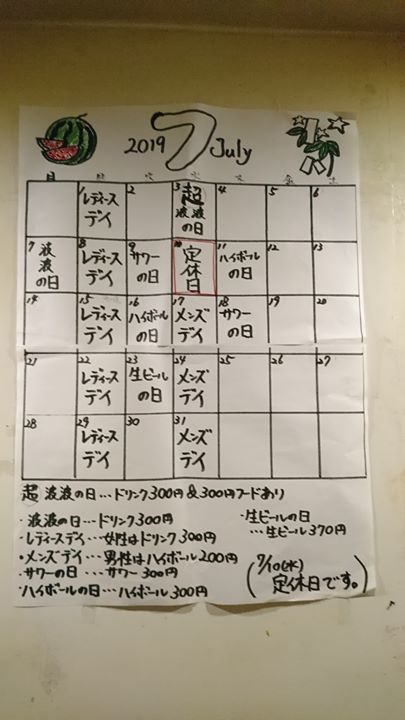 2019 7 July
日 月 火 水 木 金 土
1 レディース デイ
2
3 超 波波の日
4
5
6
7 波波の日
8 レディース デイ
9 サワーの日
10 定休日
11 ハイボールの日
12
13
14
15 レディース デイ
16 ハイボールの日
17 メンズ デイ
18 サワーの日
19
20
21
22 レディース デイ
23 生ビールの日
24 メンズ デイ
25
26
27
28
29 レディース デイ
30
31 メンズ デイ
超 波波の日…ドリンク300円&300円フードあり
・波波の日…ドリンク300円
・レディースデイ…女性はドリンク300円
・メンズデイ…男性はハイボール200円
・サワーの日…サワー300円
・ハイボールの日…ハイボール300円
・生ビールの日
…生ビール370円
(7/10(水)
定休日です。)